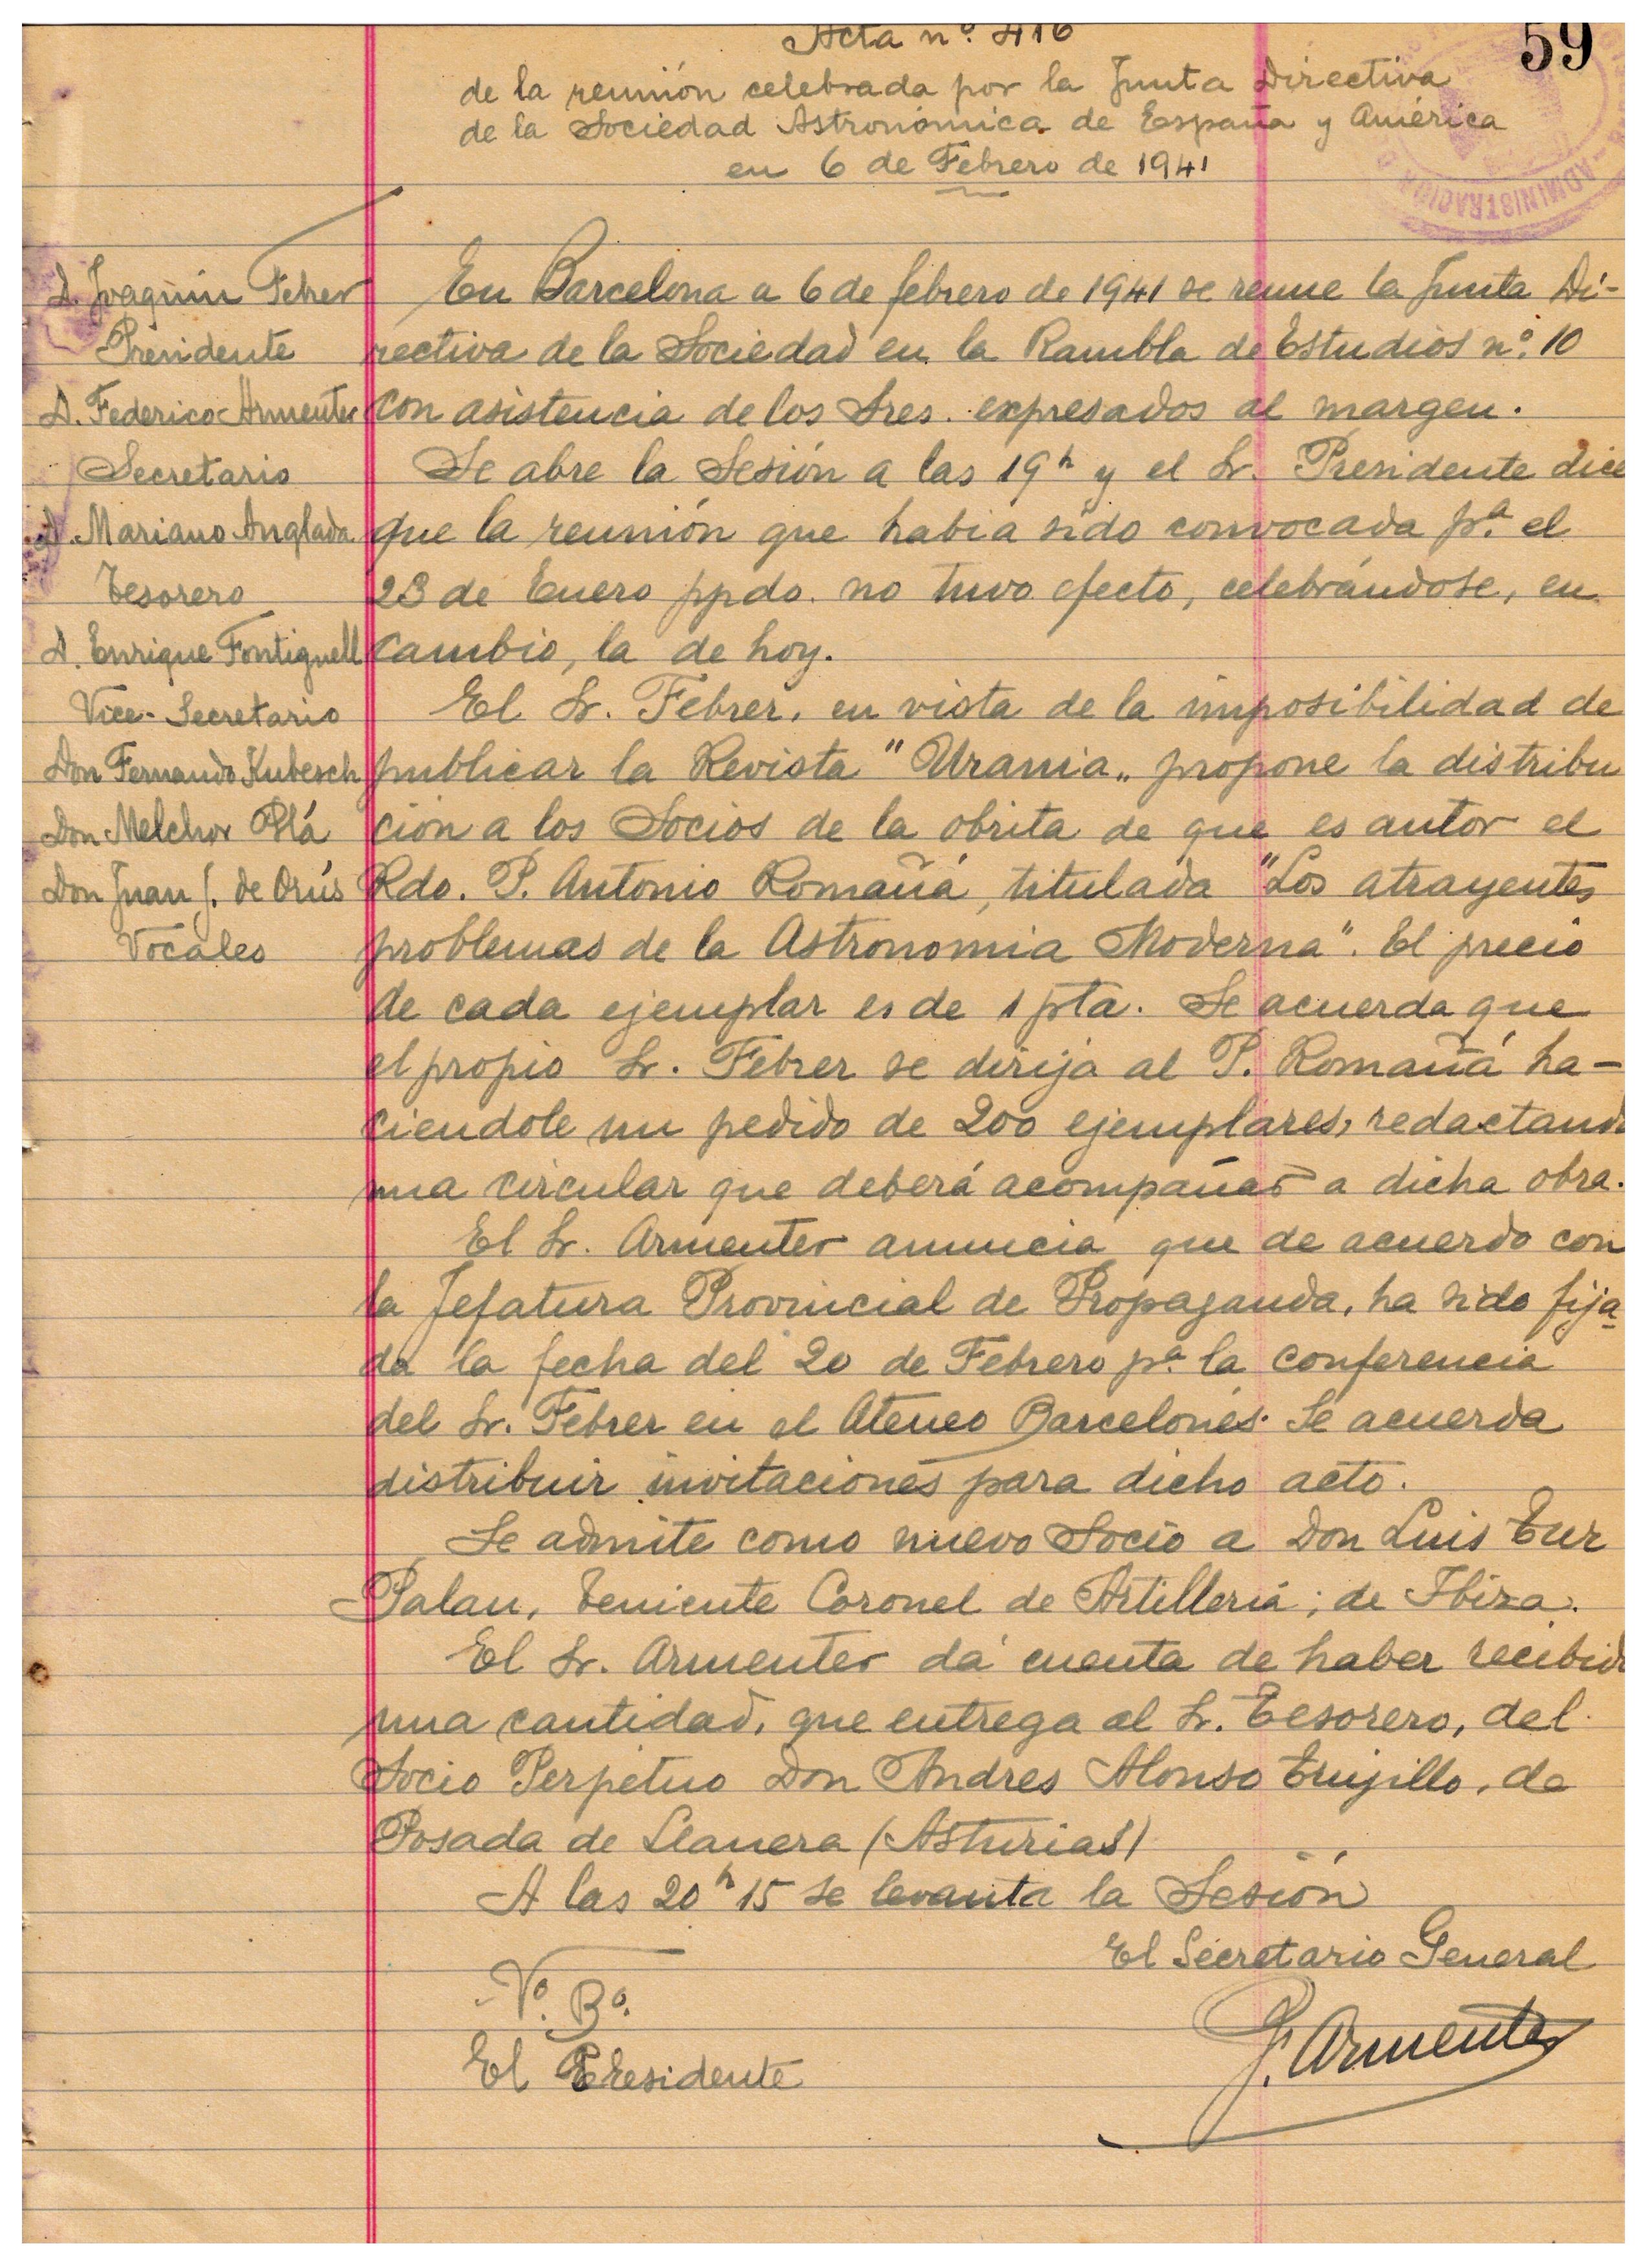 59
Acta nº. 416
de la reunión celebrada por la Junta Directiva
de la Sociedad Astronómica de España y América
en 6 de Febrero de 1941
ADMINISTRACION
D. Joaquín Febrer
Presidente
D. Federico Armenter
Secretario
D. Mariano Anglada
Tesorero
D. Enrique Fontiguell
Vice-Secretario
Don Fernando Kubesch
Don Melchor Plá
Don Juan J. de Orús
Vocales
En Barcelona a 6 de febrero de 1941 se reune la Junta Di-
rectiva de la Sociedad en la Rambla de Estudios nº. 10
con asistencia de los Sres. expresados al margen.
Se abre la Sesión a las 19h y el Sr. Presidente dice
que la reunión que habia sido convocada pª. el
23 de Enero ppdo. no tuvo efecto, celebrándose, en
cambio, la de hoy.
El Sr. Febrer, en vista de la imposibilidad de
publicar la Revista "Urania„ propone la distribu
ción a los Socios de la obrita de que es autor el
Rdo. P. Antonio Romañá, titulada "Los atrayentes
problemas de la Astronomia Moderna". El precio
de cada ejemplar es de 1 pta. Se acuerda que
el propio Sr. Febrer se dirija al P. Romañá ha-
ciendole un pedido de 200 ejemplares, redactando
una circular que deberá acompañar a dicha obra.
El Sr. Armenter anuncia que de acuerdo con
la Jefatura Provincial de Propaganda, ha sido fija
da la fecha del 20 de Febrero pª. la conferencia
del Sr. Febrer en el Ateneo Barcelonés. Se acuerda
distribuir invitaciones para dicho acto.
Se admite como nuevo Socio a Don Luis Tur
Palau, Teniente Coronel de Artillería; de Ibiza.
El Sr. Armenter dá cuenta de haber recibido
una cantidad, que entrega al Sr. Tesorero, del
Socio Perpetuo Don Andres Alonso Trujillo, de
Posada de Llanera (Asturias)
A las 20h 15 se levanta la Sesión
El Secretario General
Vº. Bº.
El Presidente
F. Armenter